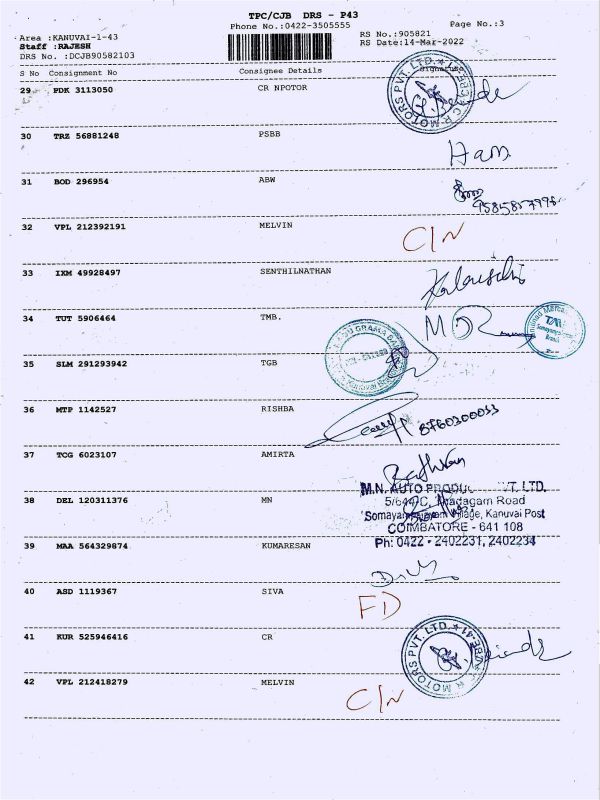 TPC/CJB DRS - P43
Phone No.:0422-3505555
Page No.:3
Area :KANUVAI-1-43
Staff :RAJESH
DRS No. :DCJB90582103
RS No.:905821
RS Date:14-Mar-2022
S No Consignment No Consignee Details Signature
29 PDK 3113050 CR NPOTOR
30 TRZ 56881248 PSBB
31 BOD 296954 ABW
9585857996
32 VPL 212392191 MELVIN C/N
33 IXM 49928497 SENTHILNATHAN
34 TUT 5906464 TMB.
35 SLM 291293942 TGB
36 MTP 1142527 RISHBA 8760300033
37 TCG 6023107 AMIRTA
38 DEL 120311376 MN
M.N. AUTO PVT. LTD.
5/644/C, Thadagam Road
Village, Kanuvai Post
COIMBATORE - 641 108
Ph: 0422 - 2402231, 2402234
39 MAA 564329874 KUMARESAN
40 ASD 1119367 SIVA FD
41 KUR 525946416 CR
42 VPL 212418279 MELVIN C/N